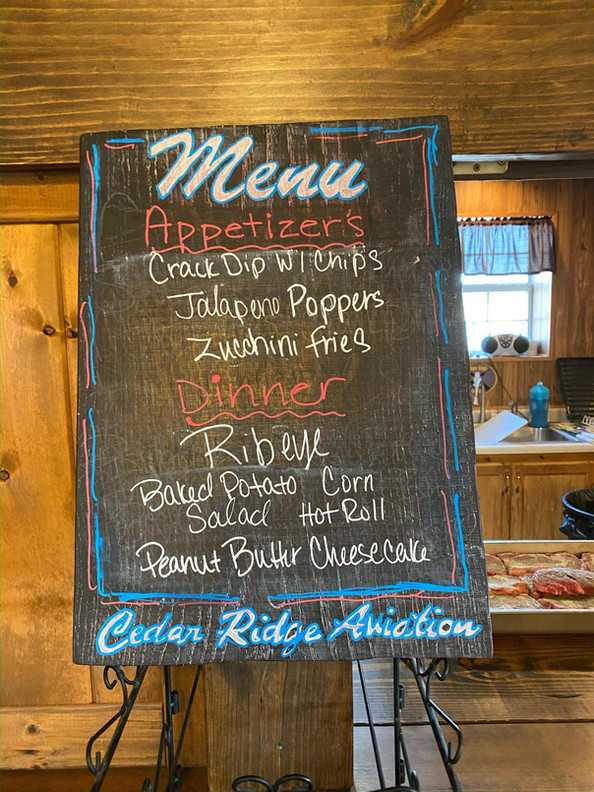 Menu
Appetizer's
Crack Dip W/ Chips
Jalapeno Poppers
Zucchini fries
Dinner
Ribeye
Baked Potato Corn
Salad Hot Roll
Peanut Butter Cheesecake
Cedar Ridge Aviation